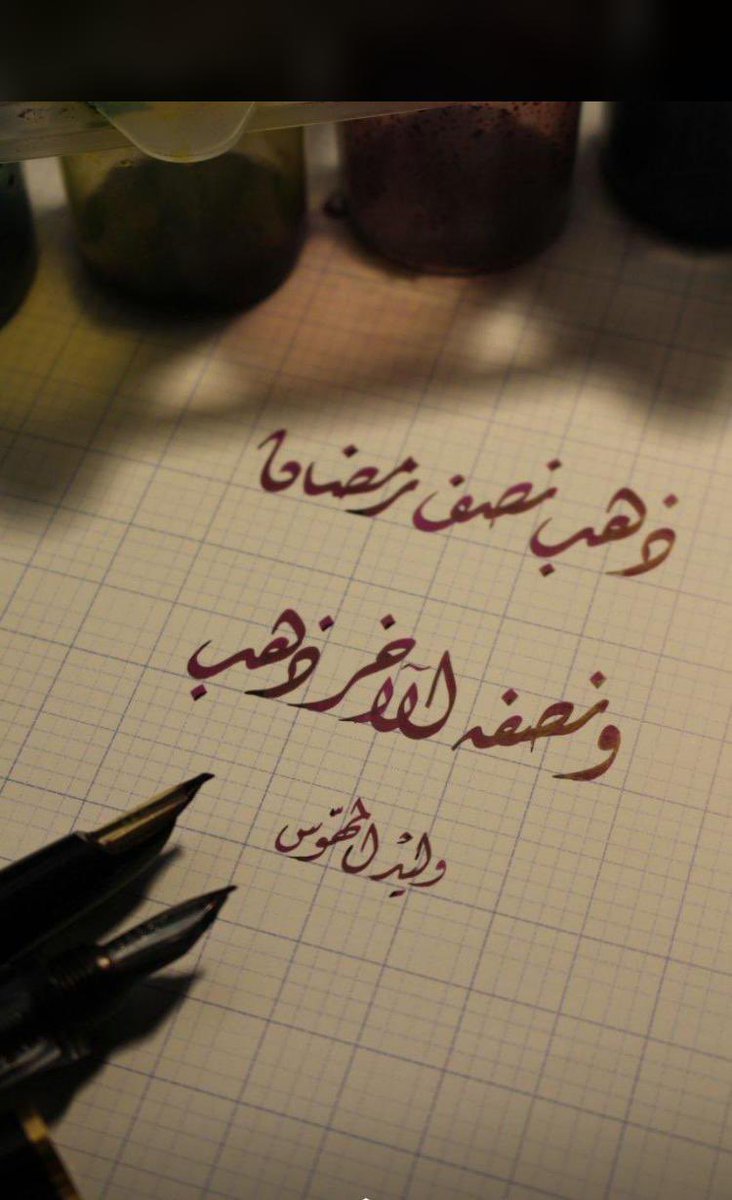 ذهب نصف رمضان
ونصفه الآخر ذهب
وليد المهوّس